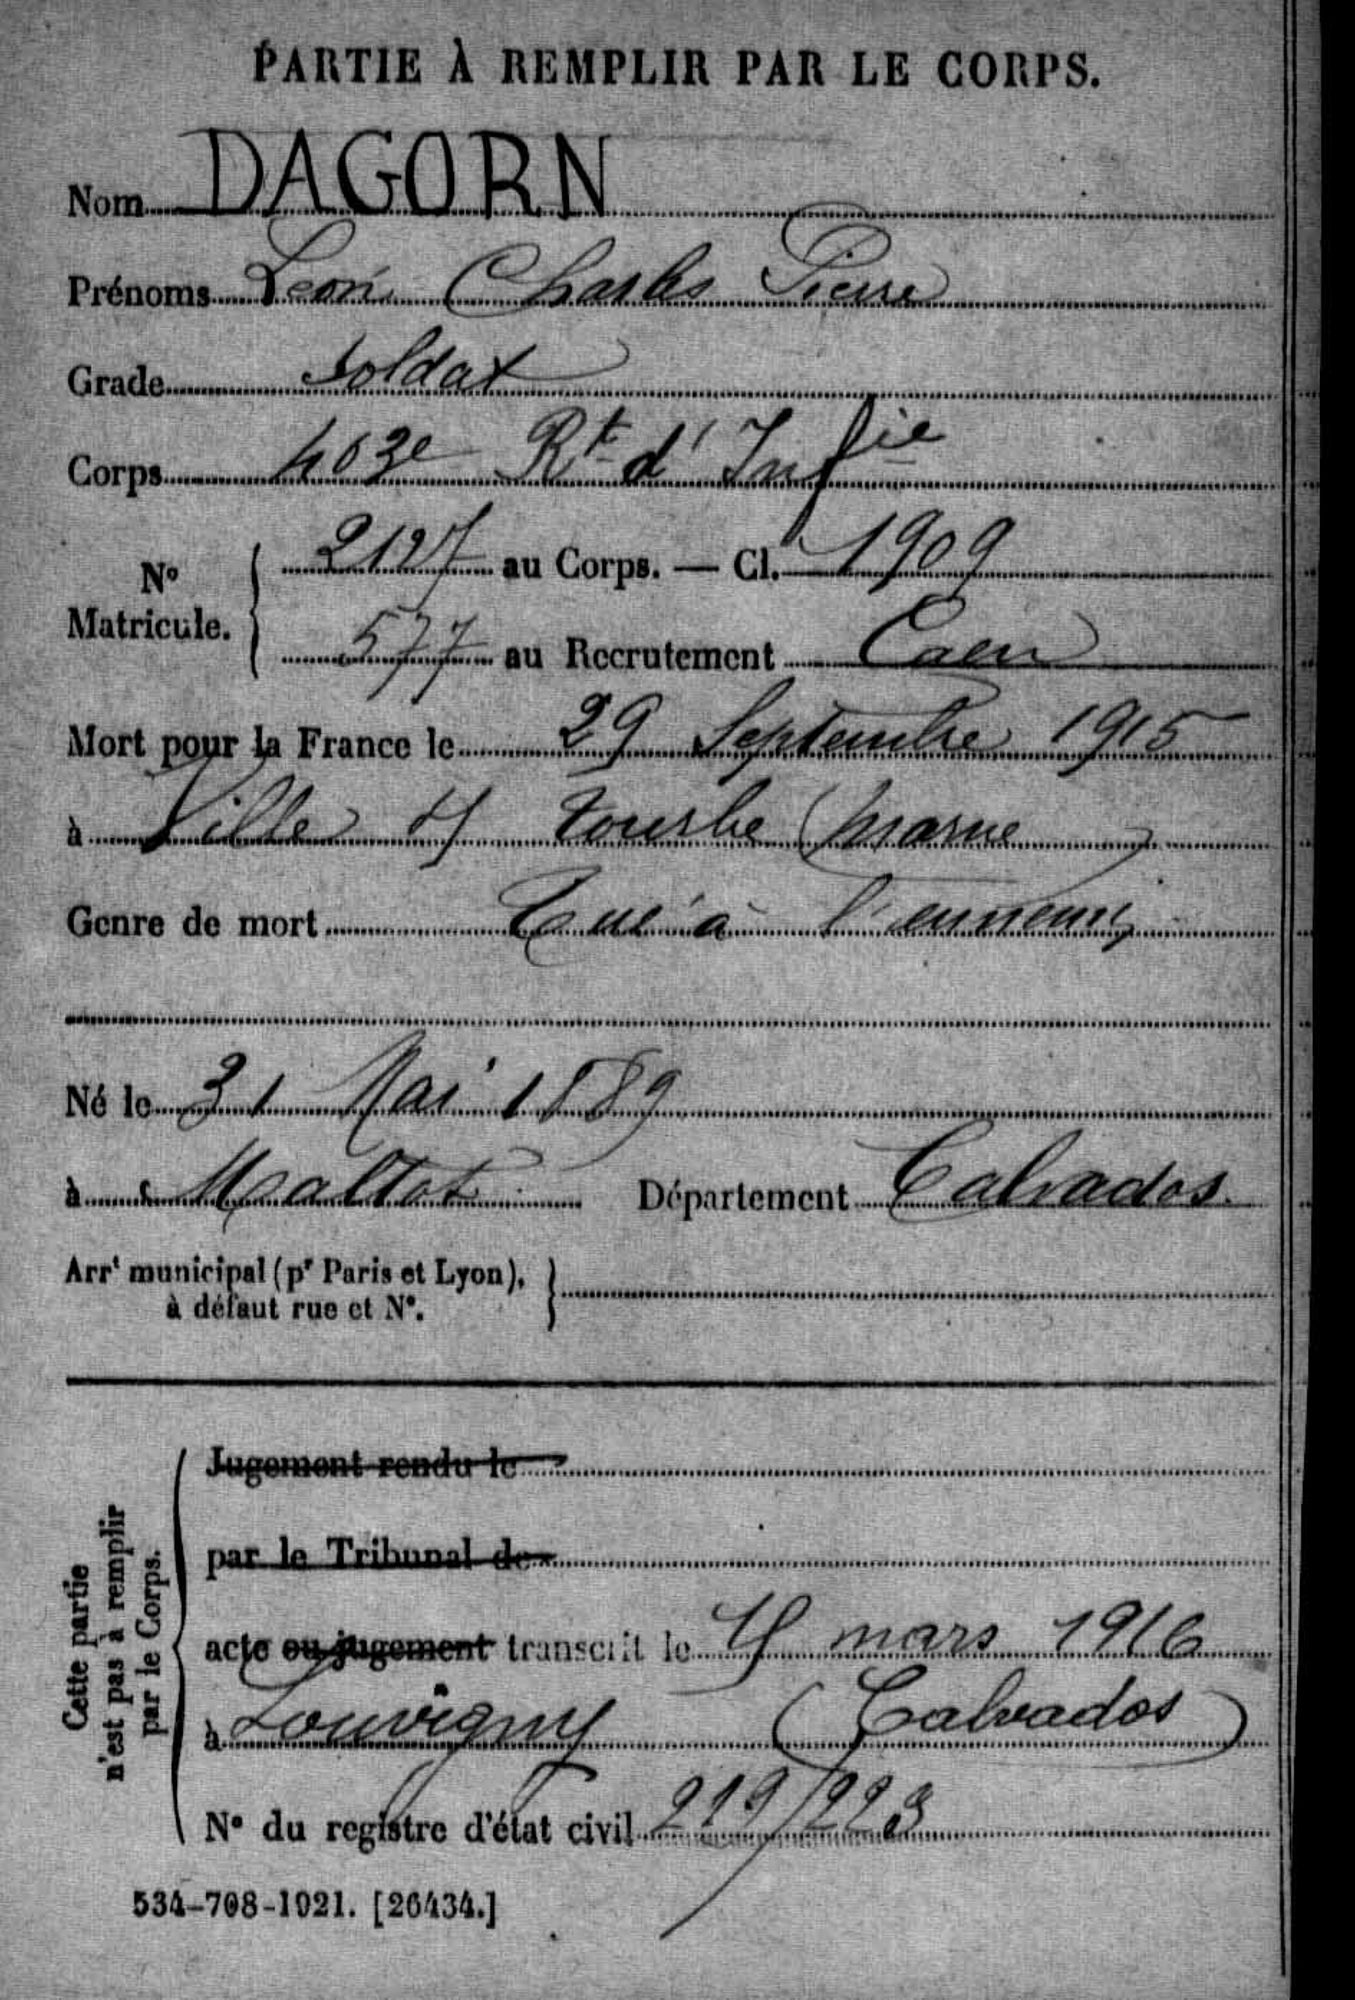 PARTIE À REMPLIR PAR LE CORPS.
Nom DAGORN
Prénoms Léon Charles Pierre
Grade Soldat
Corps 403e Rt d'Infie
N° Matricule. 2127 au Corps. — Cl. 1909
577 au Recrutement Caen
Mort pour la France le 29 Septembre 1915
à Ville s/ Tourbe (Marne)
Genre de mort Tué à l'ennemi
Né le 31 Mai 1889
à Maltot Département Calvados
Arrt municipal (pr Paris et Lyon),
à défaut rue et N°.
Cette partie
n'est pas à remplir
par le Corps.
Jugement rendu le
par le Tribunal de
acte ou jugement transcrit le mars 1916
à Louvigny (Calvados)
N° du registre d'état civil 219/223
534-708-1921. [26434.]